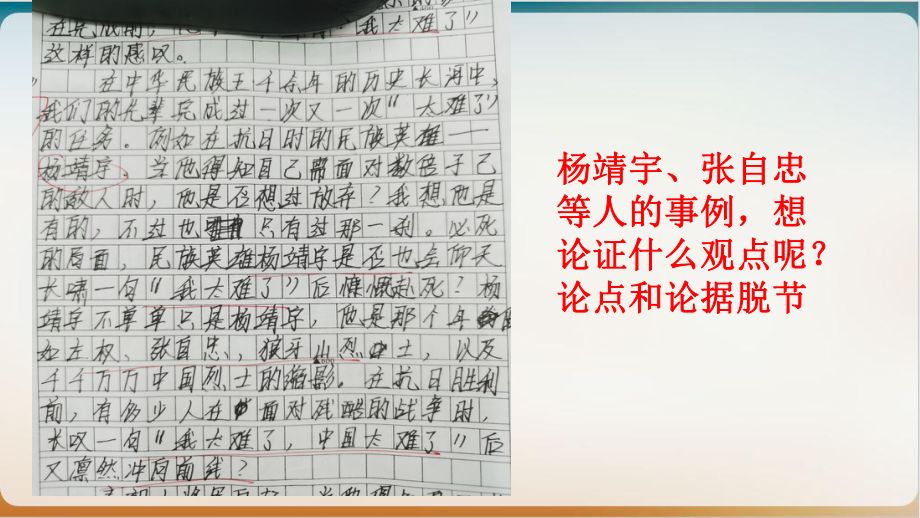 在完成前，
我太难了”
这样的感叹。
在中华民族五千余年的历史长河中，
我们的先辈完成过一次又一次“太难了”
的任务。例如在抗日时的民族英雄——
杨靖宇。当他得知自己需面对数倍于己
的敌人时，他是否想过放弃？我想他是
有的，不过也只有过那一刹。必死
的局面，民族英雄杨靖宇是否也会仰天
长啸一句“我太难了”后慷慨赴死？杨
靖宇不单单只是杨靖宇，他是那个年
如左权、张自忠、狼牙山烈士，以及
千千万万中国烈士的缩影。在抗日胜利
前，有多少人在面对残酷的战争时，
长叹一句“我太难了，中国太难了”后
又凛然冲向前线？
杨靖宇、张自忠
等人的事例，想
论证什么观点呢？
论点和论据脱节